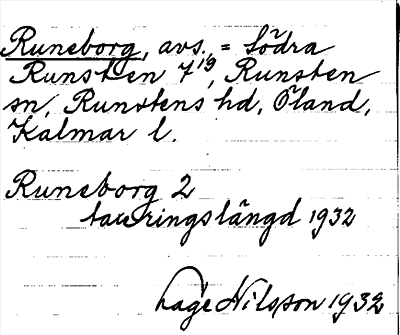 Runeborg, avs., = Södra
Runsten 7¹⁹, Runsten
sn, Runstens hd, Öland,
Kalmar l.
Runeborg 2
taxeringslängd 1932
Lage Nilsson 1932